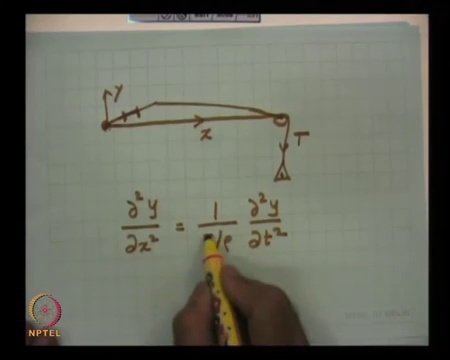 y
x
T
∂²y/∂x² = 1/(/ρ) ∂²y/∂t²
NPTEL